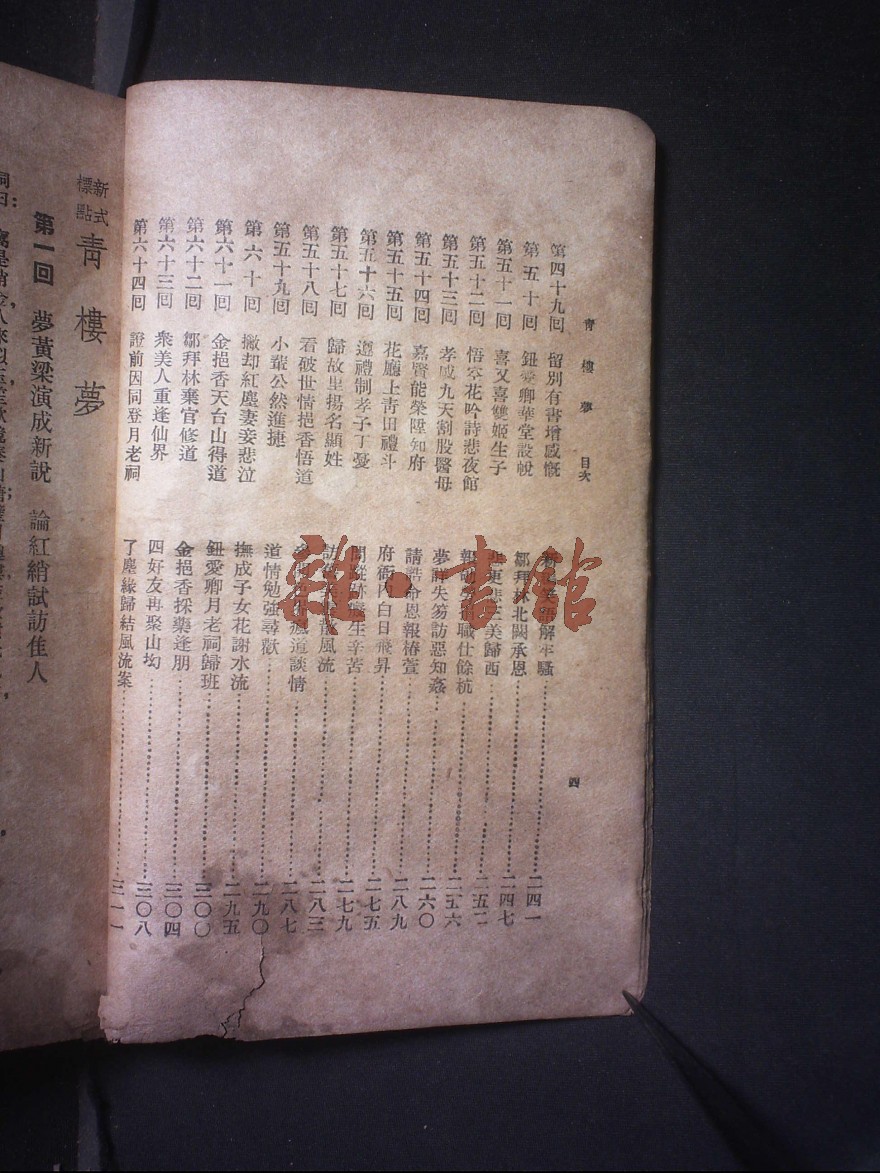 青樓夢 目次 四
第四十九回 留別有書增感慨 解牢騷 二四一
第五十回 鈕愛卿華堂設帨 鄒拜林北闕承恩 二四七
第五十一回 喜又喜雙姬生子 悲更悲三美歸西 二五二
第五十二回 悟空花吟詩悲夜館 職仕餘杭 二五六
第五十三回 孝感九天割股醫母 夢詳失笏訪惡知姦 二六〇
第五十四回 嘉賢能榮陞知府 請誥命恩報椿萱 二八九
第五十五回 花廳上青田禮斗 府衙內白日飛昇 二七五
第五十六回 遵禮制孝子丁憂 生辛苦 二七九
第五十七回 歸故里揚名顯姓 訪 散風流 二八三
第五十八回 看破世情挹香悟道 瘋道談情 二八七
第五十九回 小輩公然進捷 道情勉強尋歡 二九〇
第六十回 撇却紅塵妻妾悲泣 撫成子女花謝水流 二九五
第六十一回 金挹香天台山得道 鈕愛卿月老祠歸班 三〇〇
第六十二回 鄒拜林棄官修道 金挹香採藥逢朋 三〇四
第六十三回 衆美人重逢仙界 四好友再聚山坳 三〇八
第六十四回 證前因同登月老祠 了塵緣歸結風流案 三一一
新式標點 青樓夢
第一回 夢黃梁演成新說 論紅綃試訪佳人
詞曰：
雜·書館